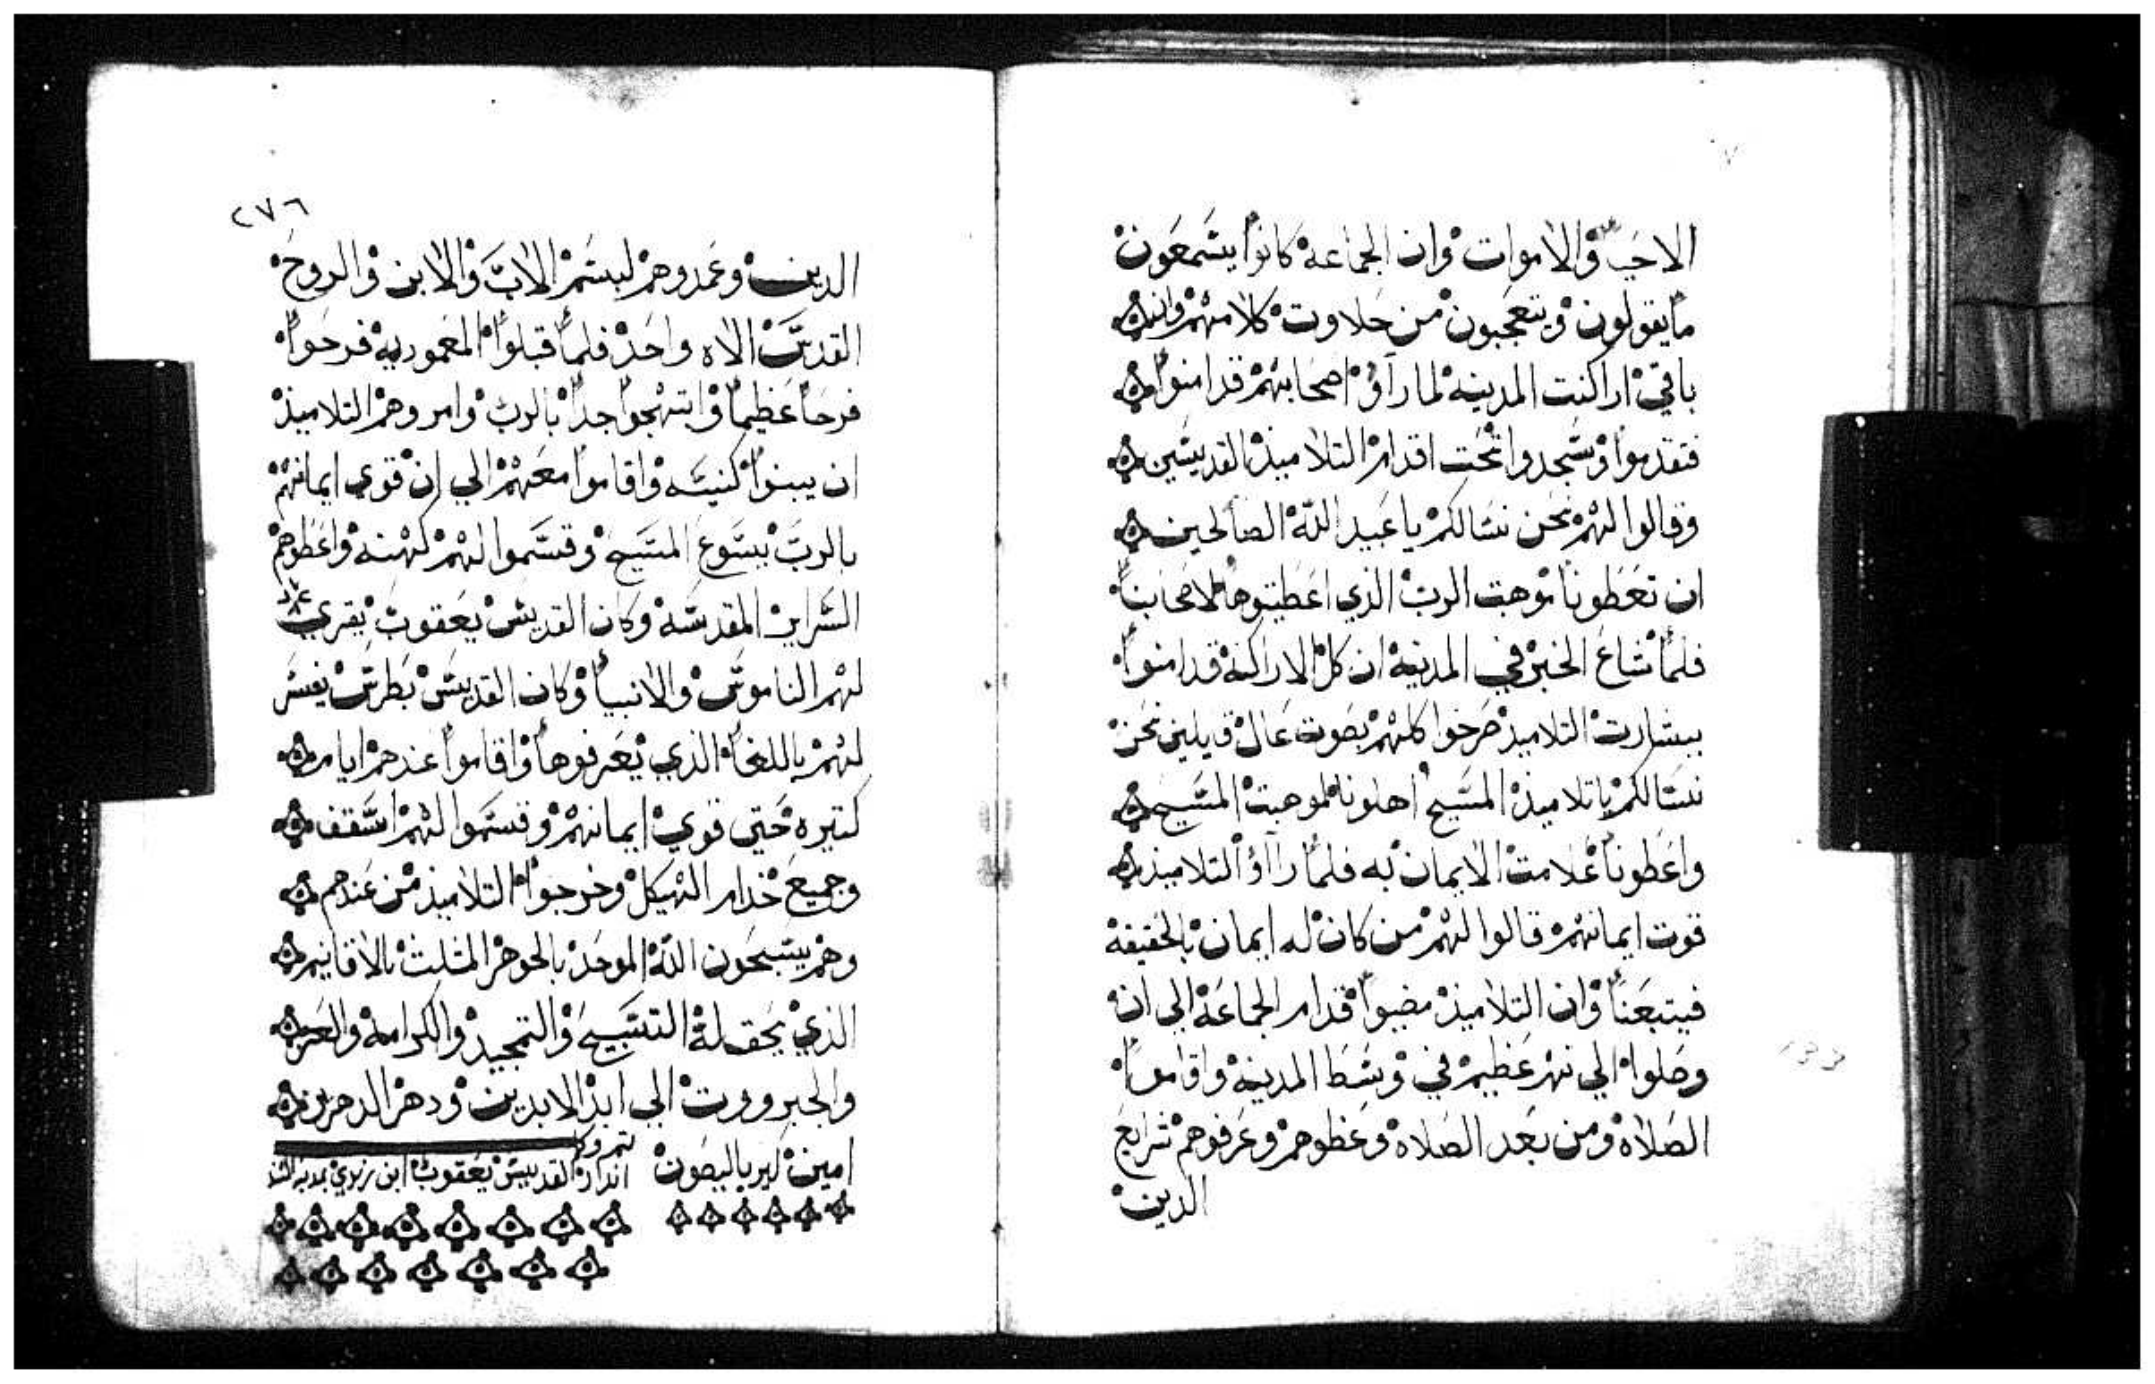 الاحيا والاموات وان الجماعة كانوا يسمعون
ما يقولون ويتعجبون من حلاوت كلامهم وان
باقي اراكنت المدينه لما رآوا اصحابهم قد امنوا
فتقدموا وسجدوا تحت اقدام التلاميذ القديسين
وقالوا لهم نحن نسالكم يا عبيد الله الصالحين
ان تعطونا موهبت الرب الذي اعطيتوها لاصحابنا
فلما شاع الخبر في المدينة ان كل الاراكنة قد امنوا
ببشارت التلاميذ صرخوا كلهم بصوت عال قايلين نحن
نسالكم يا تلاميذ المسيح اهلونا لموهبت المسيح
واعطونا علامت الايمان به فلما رآاوا التلاميذ
قوت ايمانهم قالوا لهم من كان له ايمان بالحقيقة
فيتبعنا وان التلاميذ مضيوا قدام الجماعة الي ان
وصلوا الي نهر عظيم في وسط المدينة واقاموا
الصلاة ومن بعد الصلاه وعظوهم وعرفوهم شرايع
الدين
٢٧٦
الدين وعمدوهم لبسم الاب والابن والروح
القدس الاه واحد فلما قبلوا المعموديه فرحوا
فرحا عظيما وابتهجوا جدا بالرب وامروهم التلاميذ
ان يبنوا كنيسه واقاموا معهم الي ان قوي ايمانهم
بالرب يسوع المسيح وقسموا لهم كهنه واعطوهم
السراير المقدسه وكان القديس يعقوب يقري
لهم الناموس والانبيا وكان القديس بطرس يفسر
لهم باللغا الذي يعرفوها واقاموا عندهم ايام
كتيره حتي قوي ايمانهم وقسموا لهم اسقف
وجميع خدام الهيكل وخرجوا التلاميذ من عندهم
وهم يسبحون الله الموحد بالجوهر المثلث بالاقانيم
الذي يحق له التسبيح والتمجيد والكرامه والعز
والجبرووت الي ابد الابدين ودهر الدهرين
امين كيرياليصون
تم وكل
اندار القديس يعقوب ابن زبدي